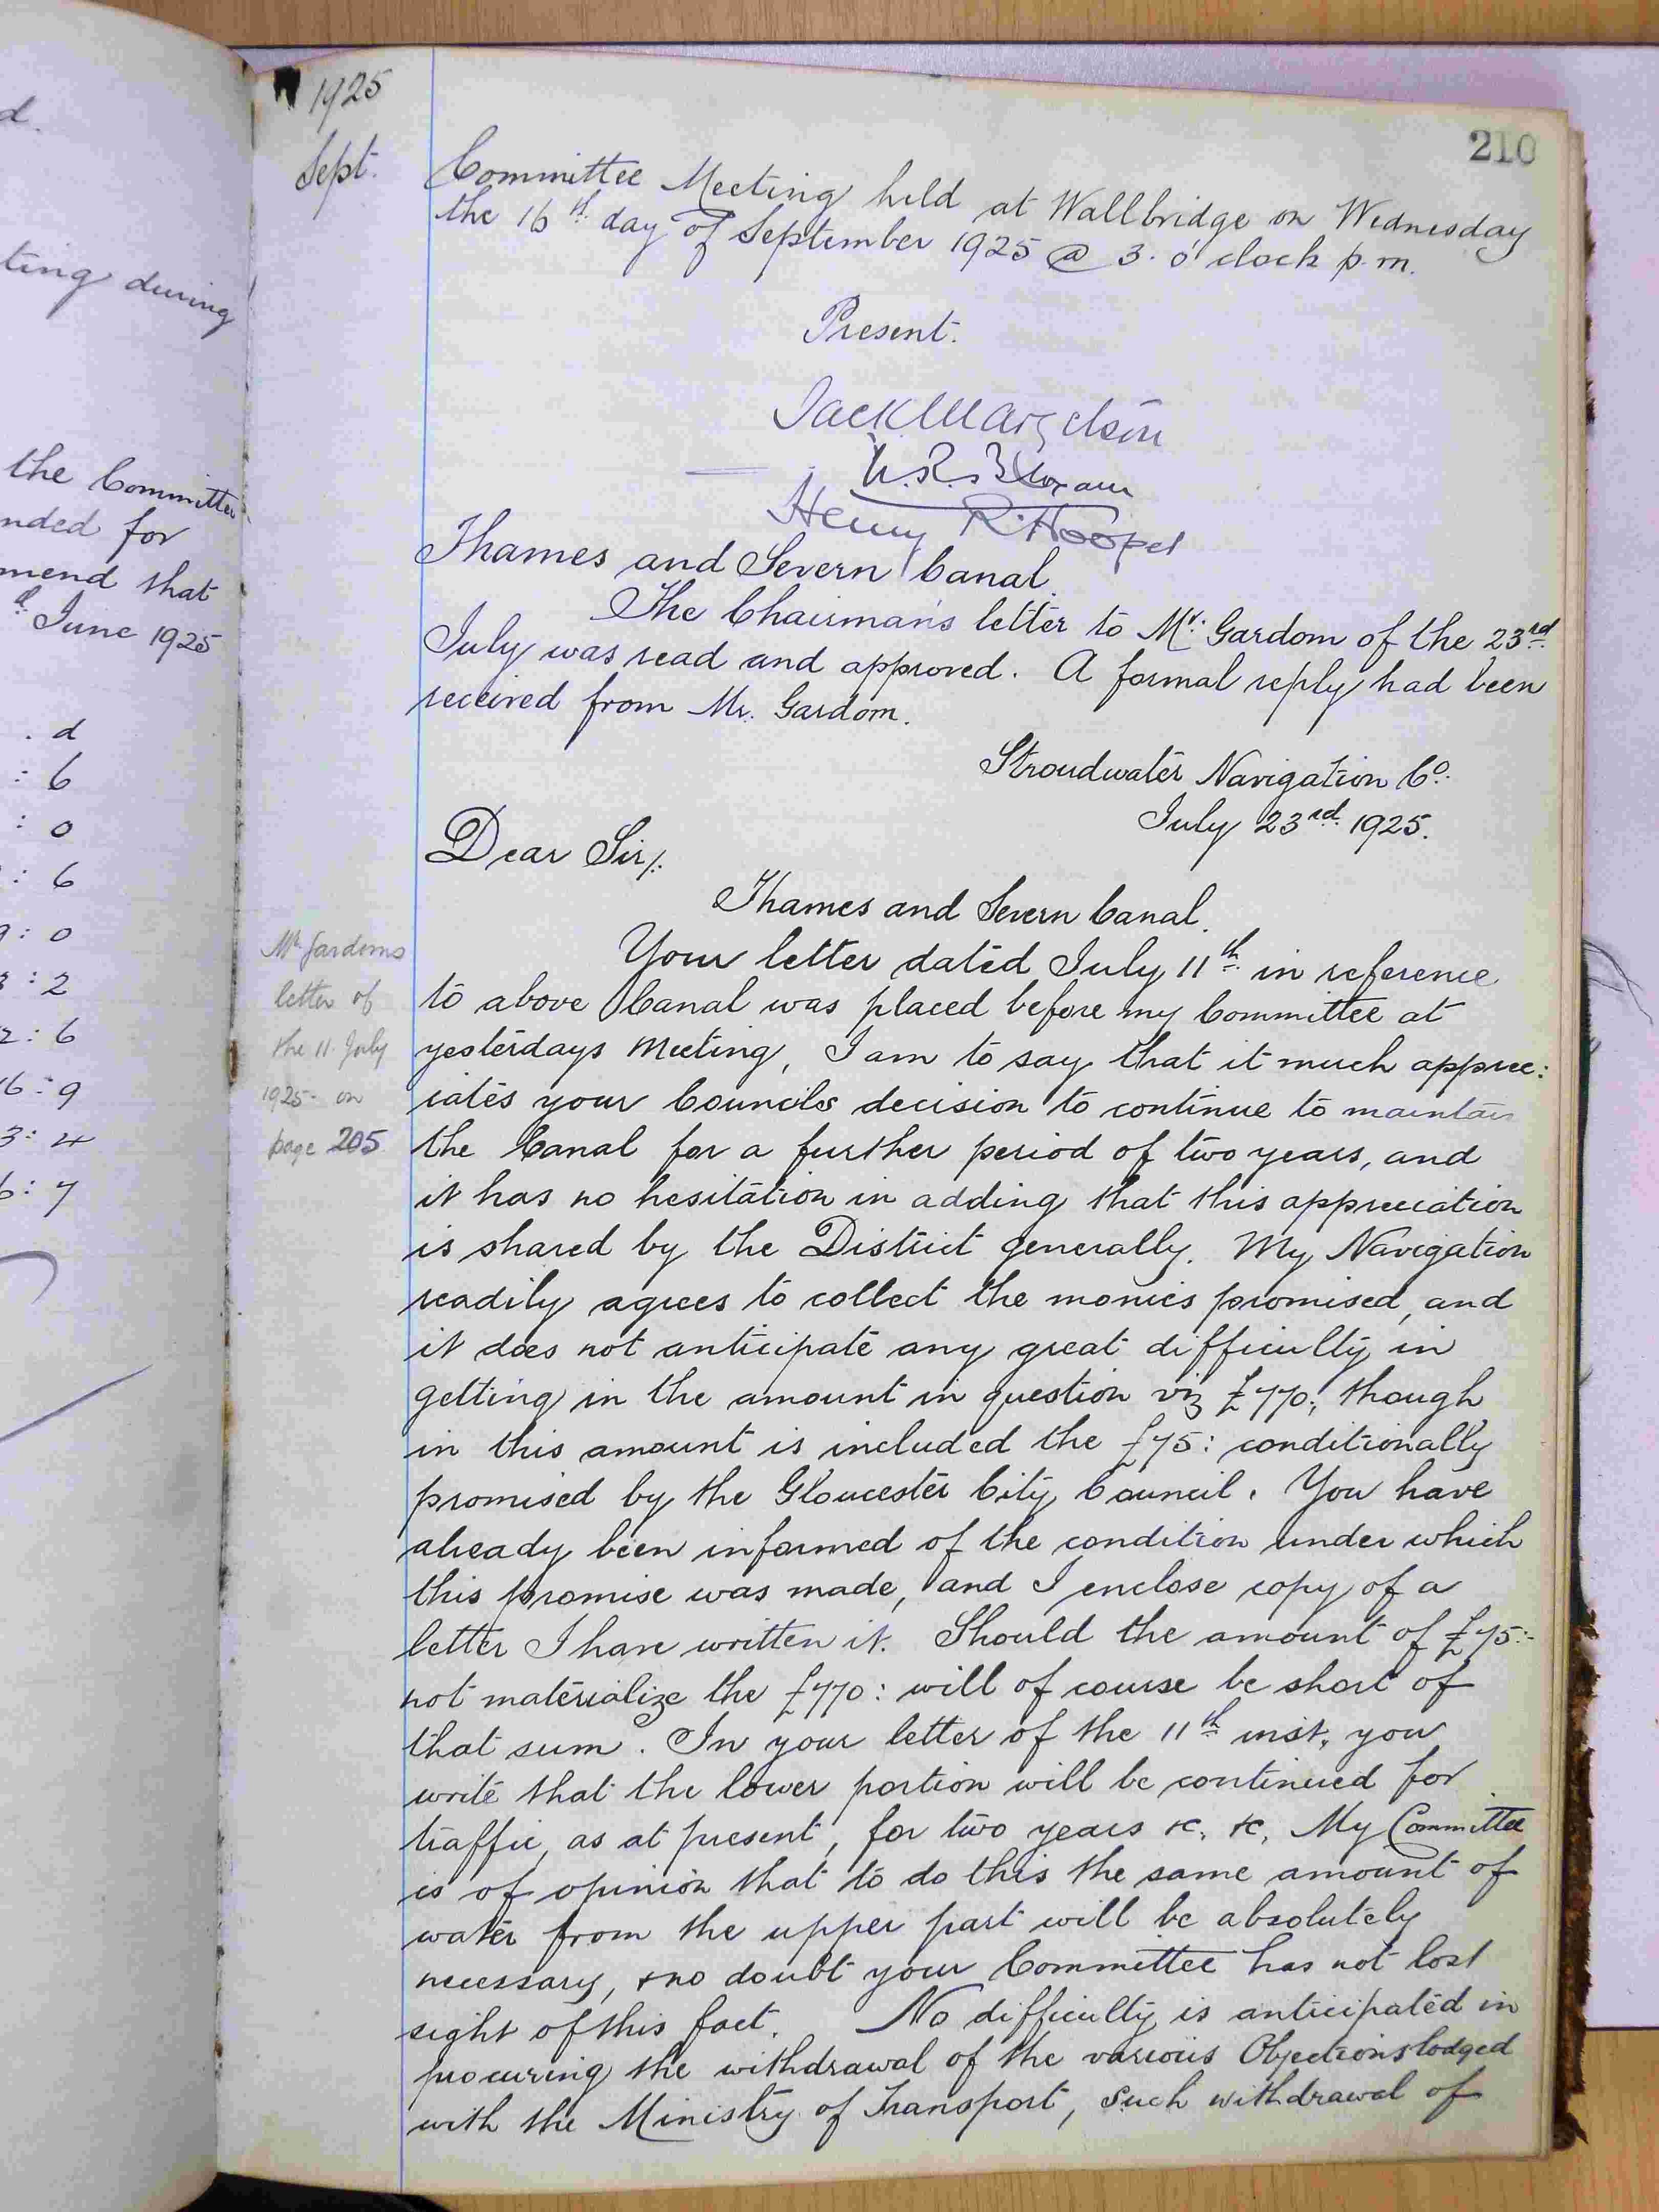 d.
ting during
the Committee
nded for
mend that
June 1925
. d
: 6
: 0
: 6
9: 0
3: 2
2: 6
16: 9
3: 4
6: 7
1925
Sept.
210
Committee Meeting held at Wallbridge on Wednesday
the 16th day of September 1925 @ 3. o'clock p.m.
Present.
Jack Margetson
Henry R. Hooper
Thames and Severn Canal.
The Chairman's letter to Mr. Gardom of the 23rd
July was read and approved. A formal reply had been
received from Mr. Gardom.
Stroudwater Navigation Co.
July 23rd. 1925.
Dear Sir/.
Thames and Severn Canal.
Mr Gardoms
letter of
the 11. July
1925- on
page 205
Your letter dated July 11th in reference
to above Canal was placed before my Committee at
yesterdays Meeting, I am to say that it much apprec:
iates your Councils decision to continue to maintain
the Canal for a further period of two years, and
it has no hesitation in adding that this appreciation
is shared by the District generally. My Navigation
readily agrees to collect the monies promised, and
it does not anticipate any great difficulty in
getting in the amount in question viz £770:, though
in this amount is included the £75: conditionally
promised by the Gloucester City Council. You have
already been informed of the condition under which
this promise was made, and I enclose copy of a
letter I have written it. Should the amount of £75:-
not materialize the £770: will of course be short of
that sum. In your letter of the 11th inst, you
write that the lower portion will be continued for
traffic, as at present, for two years &c, &c, My Committee
is of opinion that to do this the same amount of
water from the upper part will be absolutely
necessary, & no doubt your Committee has not lost
sight of this fact. No difficulty is anticipated in
procuring the withdrawal of the various Objections lodged
with the Ministry of Transport, such withdrawal of